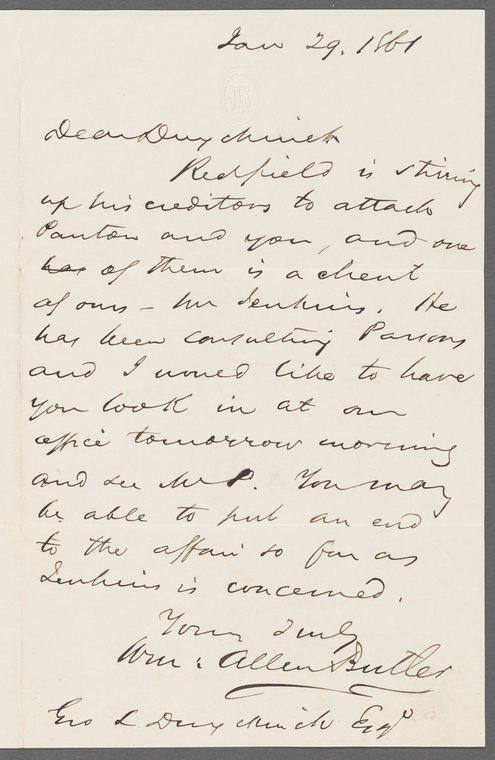 Jan 29. 1861
Dear Duyckinck
Redfield is stirring
up his creditors to attack
Panton and you, and one
has of them is a client
of ours – Mr Jenkins. He
has been consulting Parsons
and I would like to have
you look in at our
office tomorrow morning
and see Mr P. You may
be able to put an end
to the affair so far as
Jenkins is concerned.
Yours truly
Wm: Allen Butler
Geo L Duyckinck Esqr